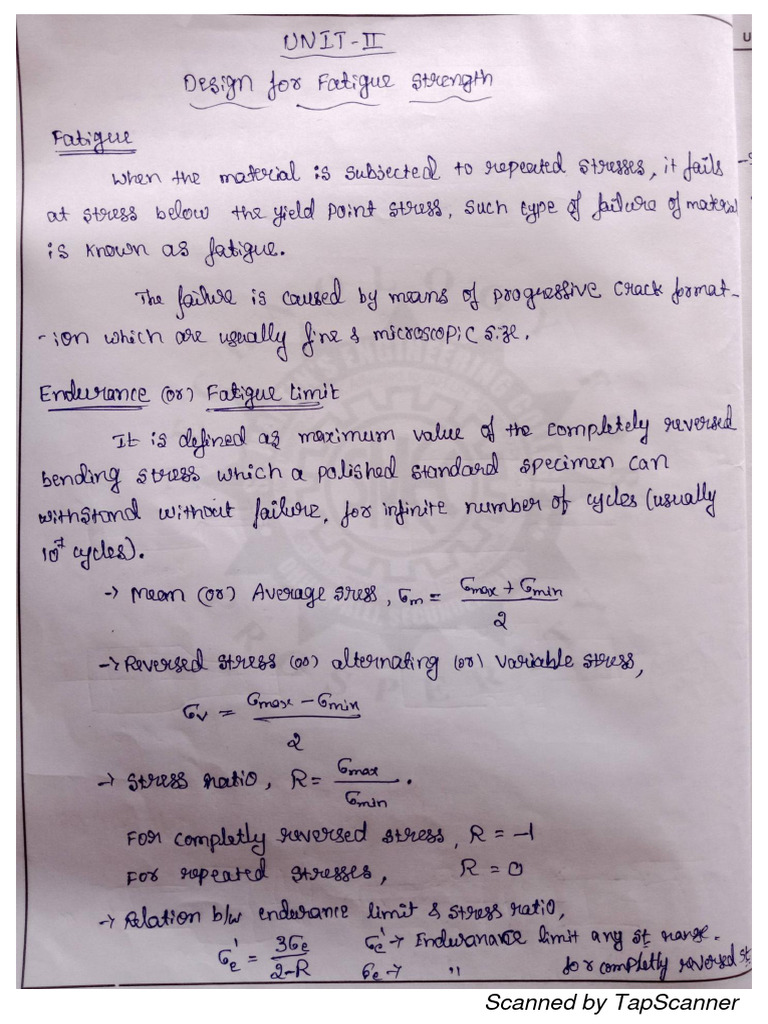 UNIT-II
Design for Fatigue Strength
Fatigue
When the material is subjected to repeated stresses, it fails
at stress below the yield point stress, such type of failure of material
is known as fatigue.
The failure is caused by means of progressive crack format-
-ion which are usually fine & microscopic size.
Endurance (or) Fatigue Limit
It is defined as maximum value of the completely reversed
bending stress which a polished standard specimen can
withstand without failure, for infinite number of cycles (usually
10⁷ cycles).
→ Mean (or) Average stress, σm = (σmax + σmin)/2
→ Reversed stress (or) alternating (or) variable stress,
σv = (σmax − σmin)/2
→ Stress ratio, R = σmax/σmin.
For completly reversed stress, R = −1
For repeated stresses, R = 0
→ Relation b/w endurance limit & stress ratio,
σe' = 3σe/(2−R) σe' → Endurance limit any st range.
σe → " for completly reversed st
Scanned by TapScanner